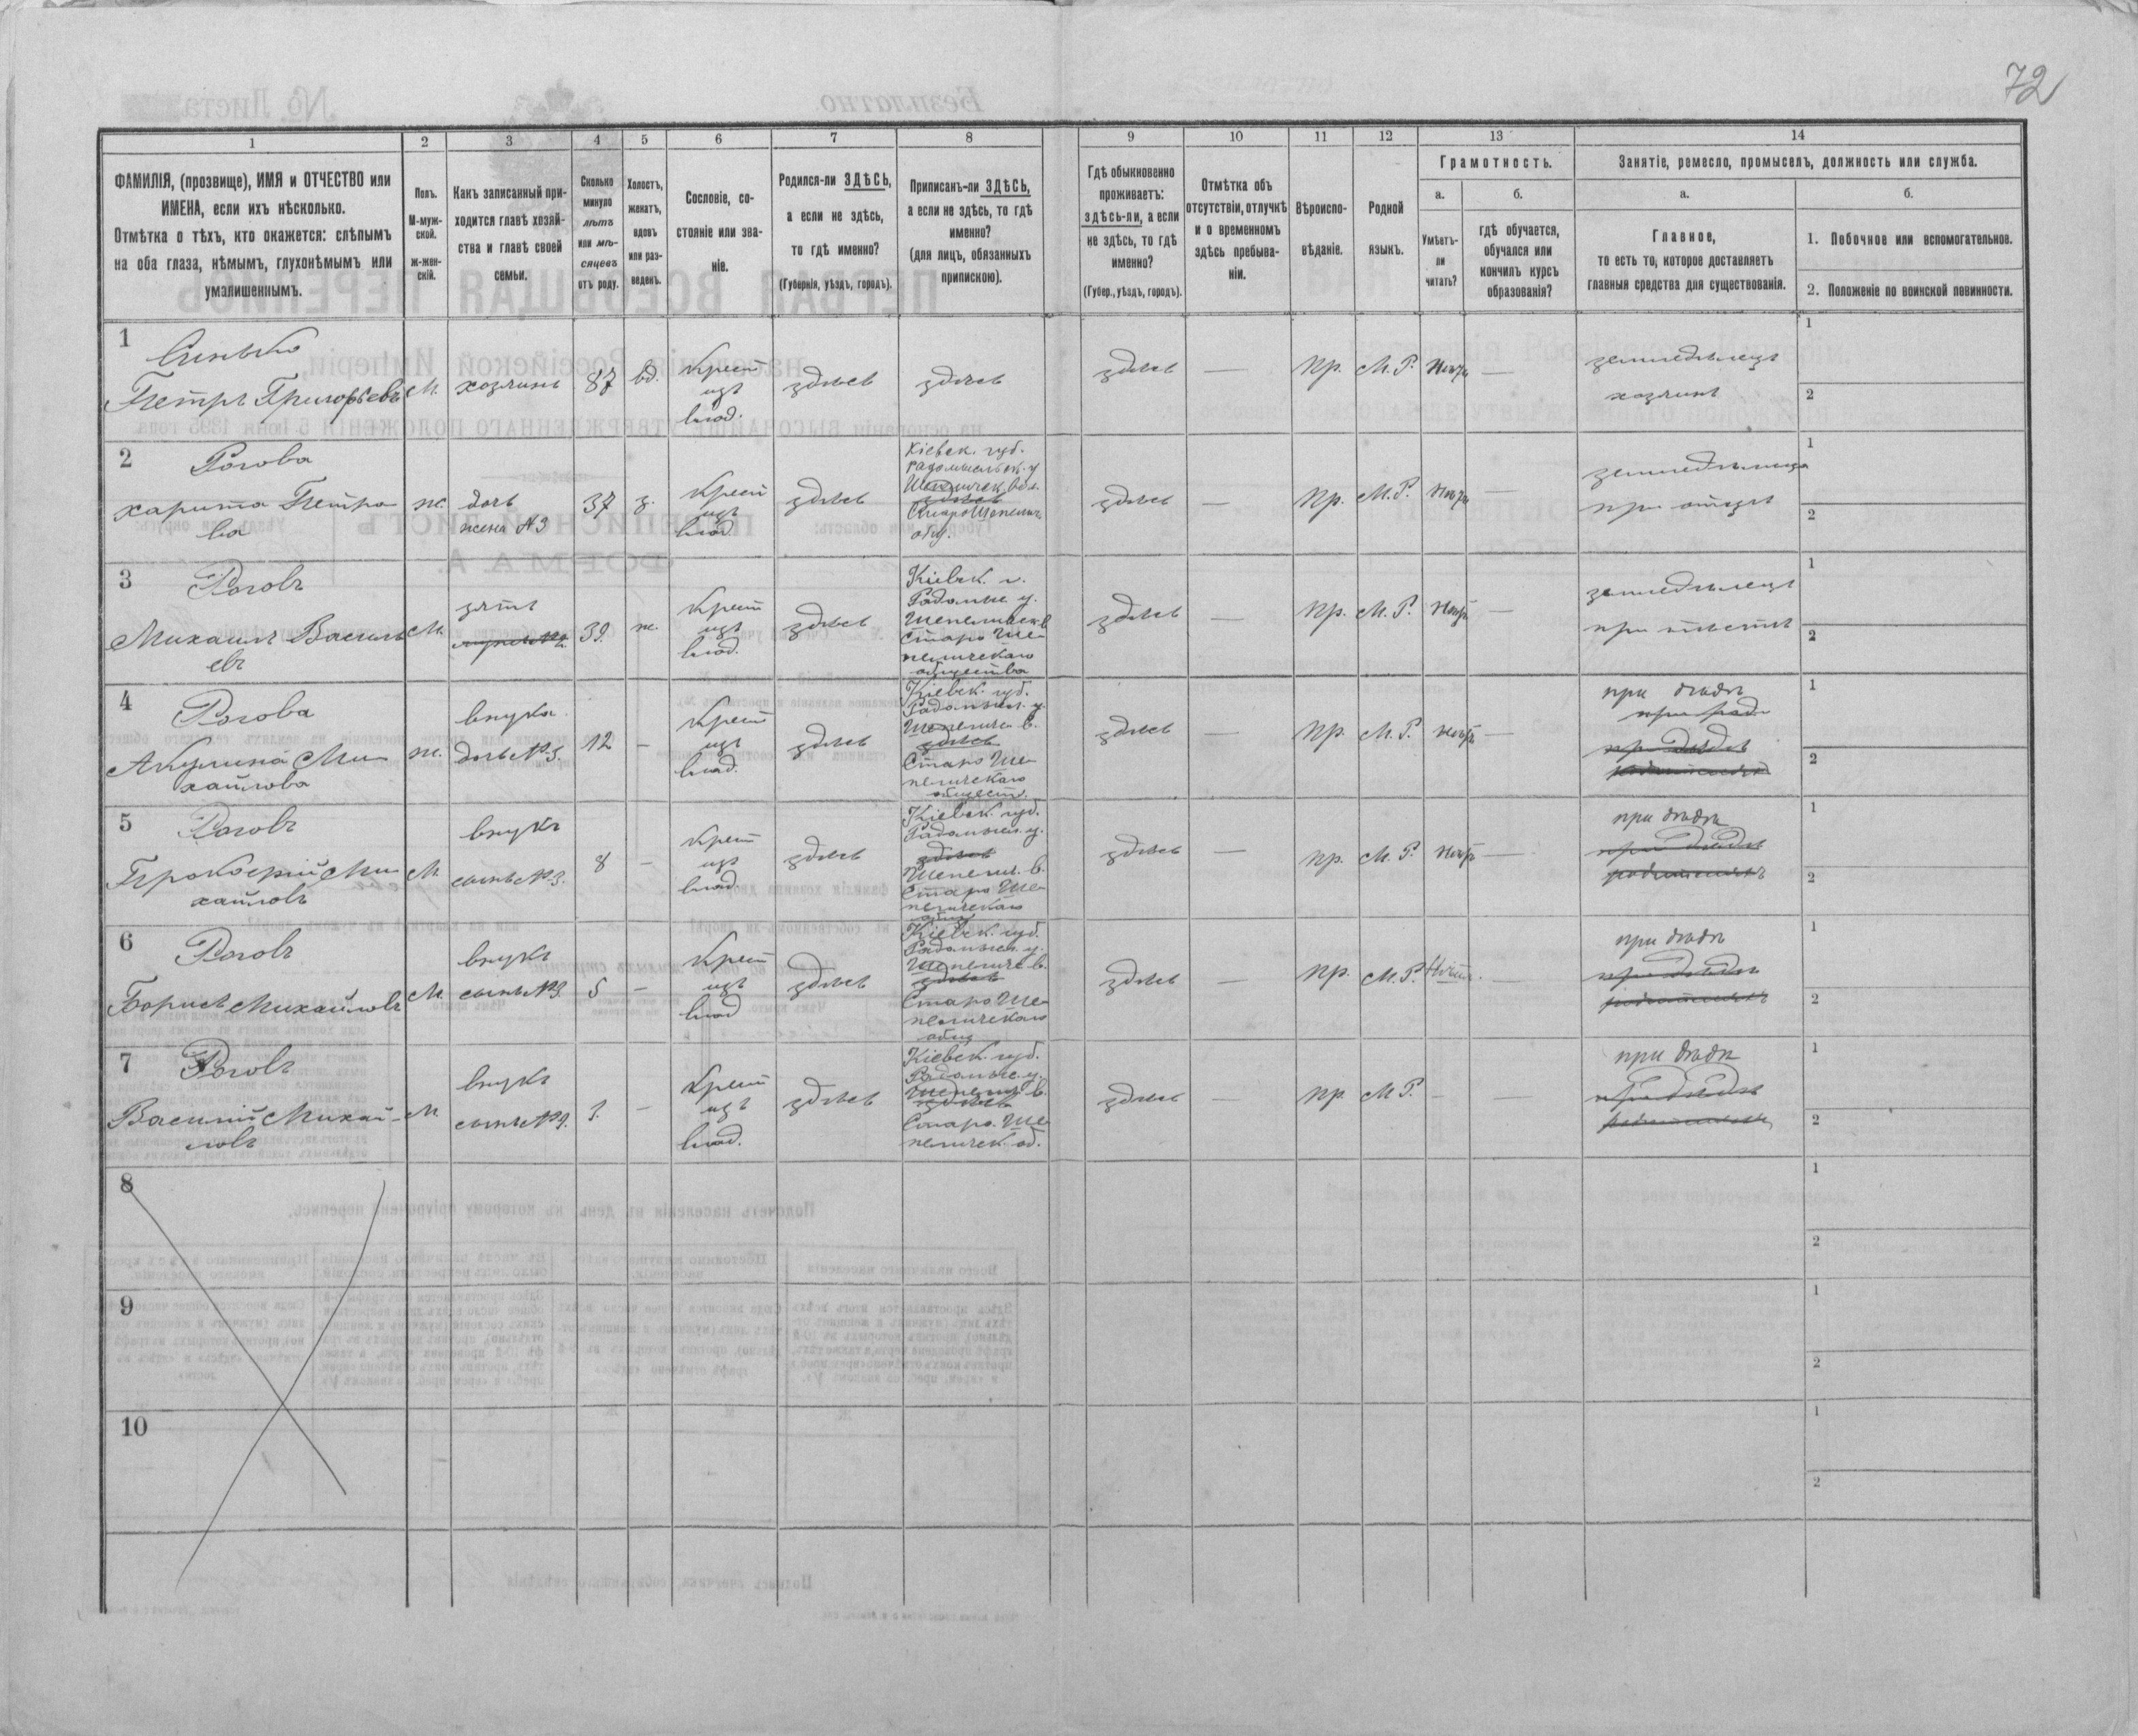 72
1
2
3
4
5
6
7
8
9
10
11
12
13
14
ФАМИЛІЯ, (прозвище), ИМЯ и ОТЧЕСТВО или
ИМЕНА, если ихъ нѣсколько.
Отмѣтка о тѣхъ, кто окажется: слѣпымъ
на оба глаза, нѣмымъ, глухонѣмымъ или
умалишеннымъ.
Полъ.
М-муж-
ской.
ж-жен-
скій.
Какъ записанный при-
ходится главѣ хозяй-
ства и главѣ своей
семьи.
Сколько
минуло
лѣтъ
или мѣ-
сяцевъ
отъ роду.
Холостъ,
женатъ,
вдовъ
или раз-
веденъ.
Сословіе, со-
стояніе или зва-
ніе.
Родился-ли ЗДѢСЬ,
а если не здѣсь,
то гдѣ именно?
(Губернія, уѣздъ, городъ).
Приписанъ-ли ЗДѢСЬ,
а если не здѣсь, то гдѣ
именно?
(для лицъ, обязанныхъ
припискою).
Гдѣ обыкновенно
проживаетъ:
здѣсь-ли, а если
не здѣсь, то гдѣ
именно?
(Губер., уѣздъ, городъ).
Отмѣтка объ
отсутствіи, отлучкѣ
и о временномъ
здѣсь пребыва-
ніи.
Вѣроиспо-
вѣданіе.
Родной
языкъ.
Грамотность.
а.
Умѣетъ-
ли
читать?
б.
гдѣ обучается,
обучался или
кончилъ курсъ
образованія?
Занятіе, ремесло, промыселъ, должность или служба.
а.
Главное,
то есть то, которое доставляетъ
главныя средства для существованія.
б.
1. Побочное или вспомогательное.
2. Положеніе по воинской повинности.
1
Синько
Петръ Григорьевъ
М.
хозяинъ
87
вд.
Крест
изъ
влад.
здѣсь
здѣсь
здѣсь
—
Пр.
М. Р.
—
земледѣлецъ
хозяинъ
1
2
2
Рогова
харита Петро
ва
ж.
дочь
жена №3
37
з.
Крест
изъ
влад.
здѣсь
Кіевск. губ.
Радомысльск. у
Шепелическ. вол.
здѣсь
Старо Шепелич
общ.
здѣсь
—
Пр.
М. Р.
—
земледѣлица
при отцѣ
1
2
3
Роговъ
Михаилъ Василь
евъ
М.
зять
39
ж.
Крест
изъ
влад.
здѣсь
Кіевск. г.
Радомыс у.
Старо Ше
пеличскаго
общества
здѣсь
—
Пр.
М. Р.
—
земледѣлецъ
при тестѣ
1
2
4
Рогова
Акулина Ми
хайлова
ж.
внука
дочь №3.
12
—
Крест
изъ
влад.
здѣсь
Кіевск. губ.
Радомысл. у.
Шепелич в.
здѣсь
Старо Ше
пеличскаго
обществ.
здѣсь
—
Пр.
М. Р.
—
при дѣдѣ
при дѣдѣ
1
2
5
Роговъ
Прокофій Ми
хайловъ
М.
внукъ
сынъ №3.
8
—
Крест
изъ
влад.
здѣсь
Кіевск. губ.
Радомысл. у.
здѣсь
Шепелич. в.
Старо Ше
пеличскаго
общ
здѣсь
—
Пр.
М. Р.
—
при дѣдѣ
при дѣдѣ
родителяхъ
1
2
6
Роговъ
Борисъ Михайловъ
М.
внукъ
сынъ №3.
5
—
Крест
изъ
влад
здѣсь
Кіевск. губ.
Радомысл. у.
Шепелич в.
здѣсь
Старо Ше
пеличскаго
общ
здѣсь
—
Пр.
М. Р.
—
при дѣдѣ
при дѣдѣ
родителяхъ
1
2
7
Роговъ
Василій Михай-
ловъ
М
внукъ
сынъ №3.
—
Крест
изъ
влад.
здѣсь
Кіевск. губ.
Радомыс. у.
Шепелич в.
здѣсь
Старо. Ше
пеличск. об.
здѣсь
—
Пр
М Р.
—
—
при дѣдѣ
при дѣдѣ
1
2
8
1
2
9
1
2
10
1
2